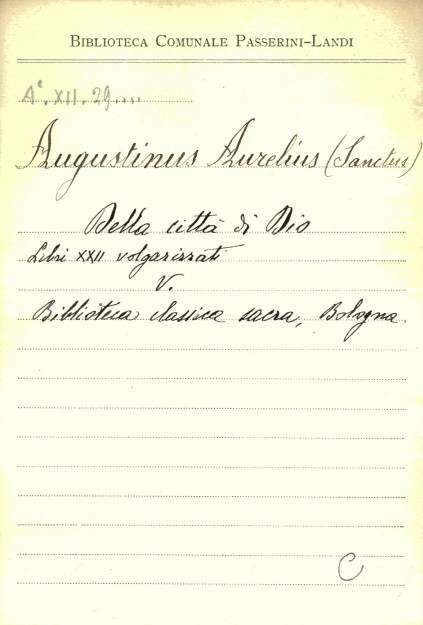 BIBLIOTECA COMUNALE PASSERINI-LANDI
A°. XII. 29....
Augustinus Aurelius (Sanctus)
Della città di Dio
Libri XXII volgarizzati
V.
Biblioteca classica sacra, Bologna.
C